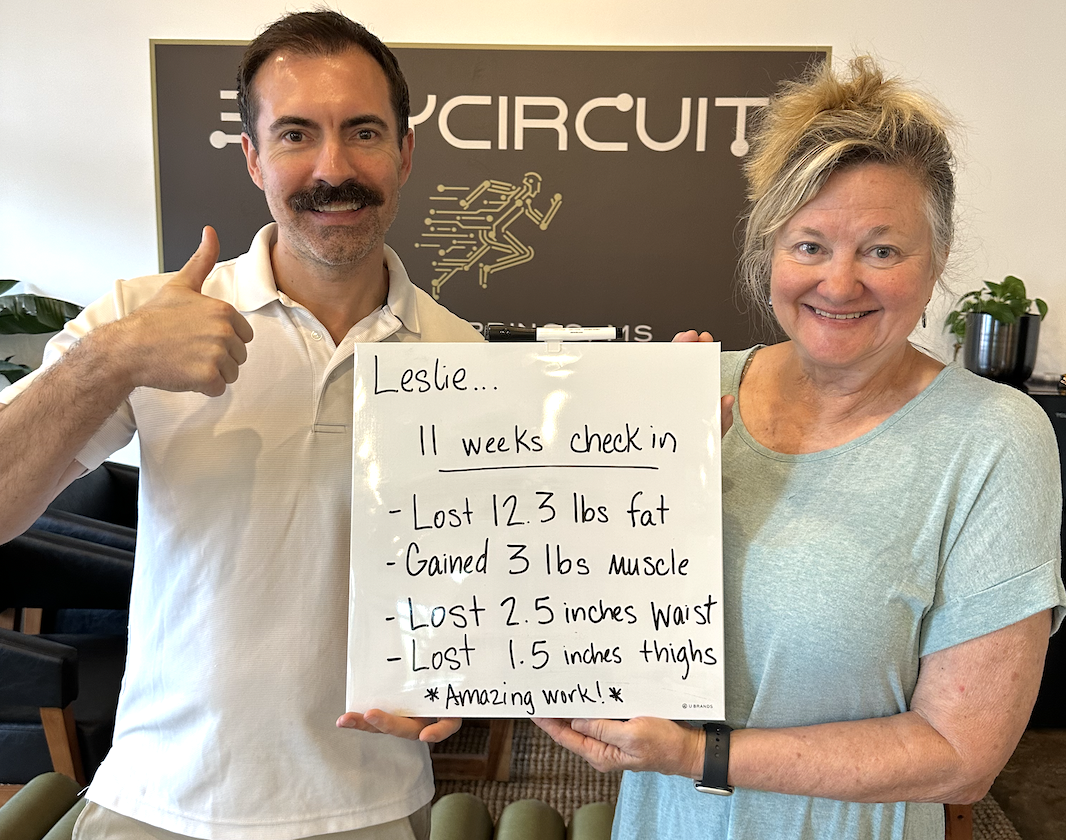 YCIRCUIT
Leslie...
11 weeks check in
- Lost 12.3 lbs fat
- Gained 3 lbs muscle
- Lost 2.5 inches waist
- Lost 1.5 inches thighs
*Amazing work!*
U BRANDS